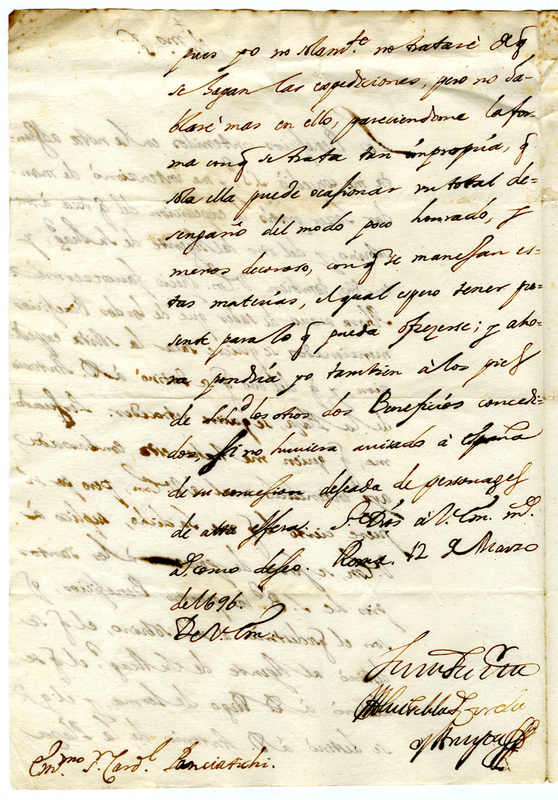 pues yo no solam.te no trataré de q̃
se hagan las expediciones, pero no ha-
blaré mas en ello, pareciendome la for-
ma conq̃ se trata tan impropria, q̃
sola ella puede ocasionar un total de-
sengaño del modo poco honrado, y
menos decoroso, conq̃ se manejan es-
tas materias, el qual espero tener pre-
sente para lo q̃ pueda ofrezerse; y aho-
ra pondria yo tambien à los pies
de los otros dos Beneficios concedi-
dos, si no huviera avisado à España
de su concesion deseada de personages
de alta esfera. Dios à V. Em. m.s
a.s como deseo. Roma. 12 de Marzo
de 1696.
De V. Em.
Em.mo S.r Card.l Panciatichi.